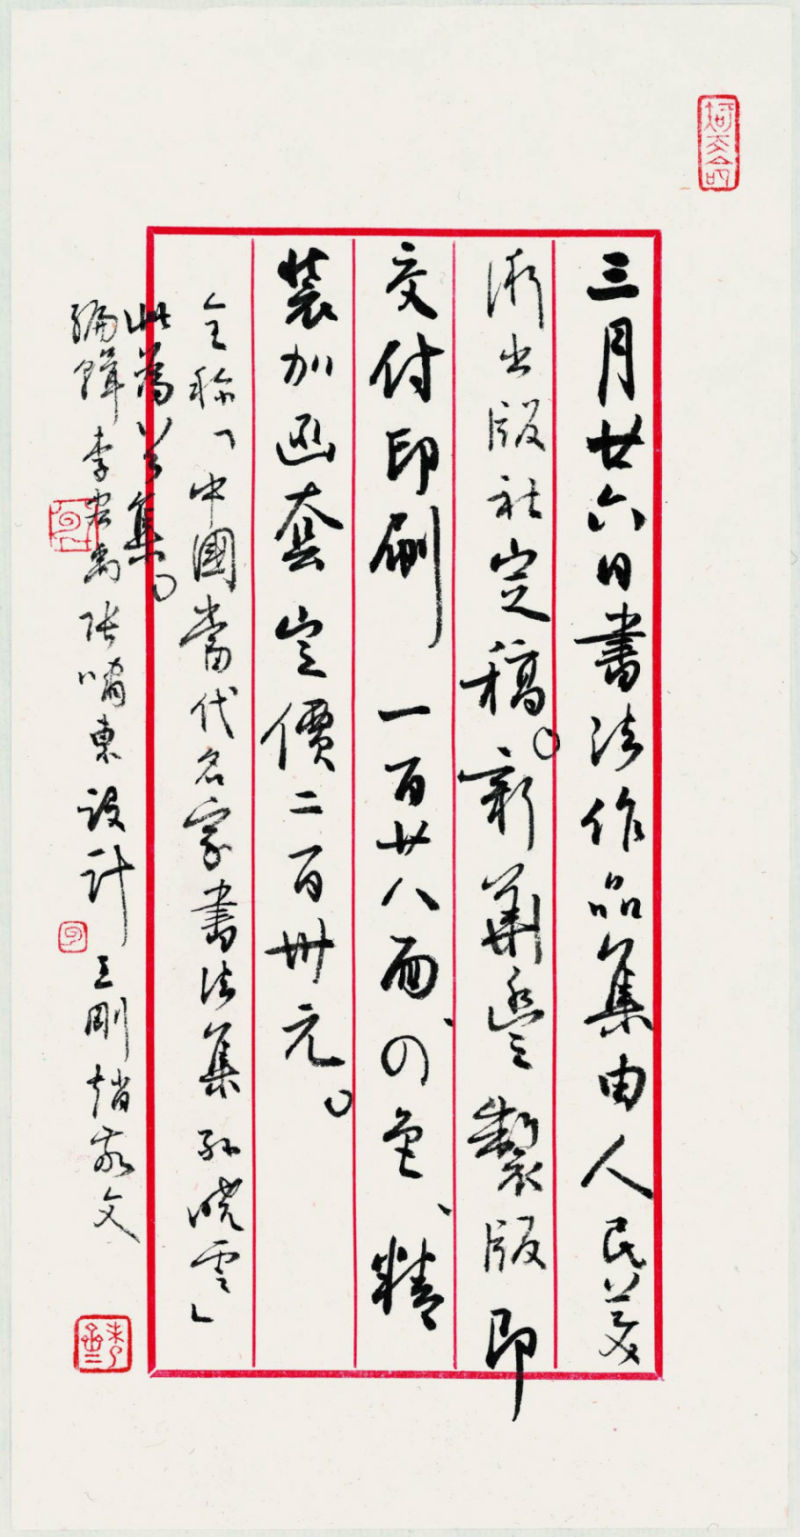 三月廿六日書法作品集由人民美
術出版社定稿。新華豐製版即
交付印刷 一百廿八面、四色、精
裝加函套 定價二百卅元。
全称「中國當代名家書法集 孙曉雲」
此為首集。
編輯 李宏禹 张嘯東 設計 王剛 趙家文